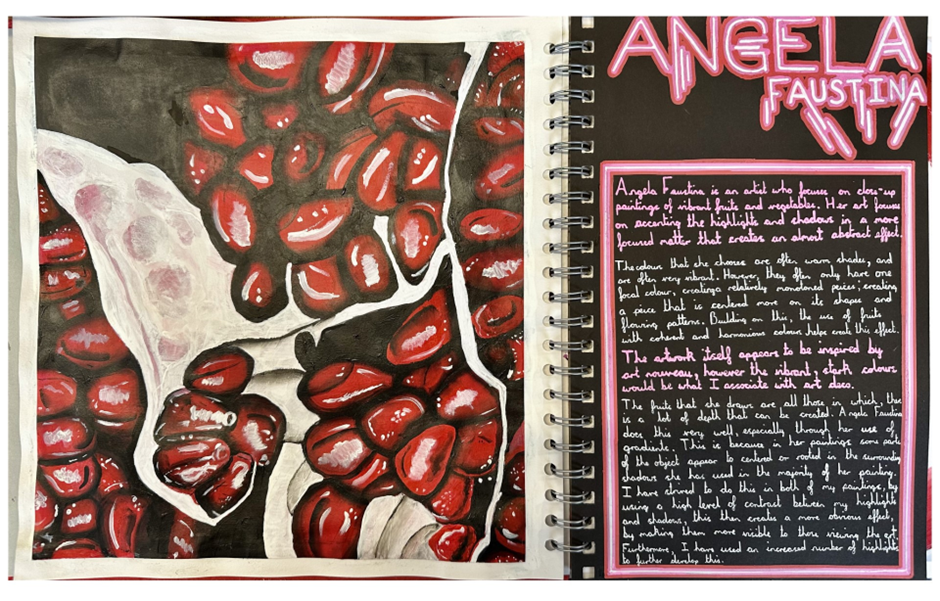 ANGELA
FAUSTINA
Angela Faustina is an artist who focuses on close-up
paintings of vibrant fruits and vegetables. Her art focuses
on accenting the highlights and shadows in a more
focused matter that creates an almost abstract effect.
The colours that she chooses are often warm shades, and
are often very vibrant. However, they often only have one
focal colour, creating a relatively monotoned peices; creating
a peice that is centered more on its shapes and
flowing patterns. Building on this, the use of fruits
with coherent and harmonious colours helps create this effect.
The artwork itself appears to be inspired by
art nouveau, however the vibrant, stark colours
would be what I associate with art deco.
The fruits that she draws are all those in which, there
is a lot of depth that can be created. Angela Faustina
does this very well, especially through her use of
gradients. This is because in her paintings some parts
of the object appear to centered or rooted in the surrounding
shadows she has used in the majority of her painting.
I have strived to do this in both of my paintings, by
using a high level of contrast between my highlights
and shadows, this then creates a more obvious effect,
by making them more visible to those viewing the art.
Furthermore, I have used an increased number of highlights
to further develop this.